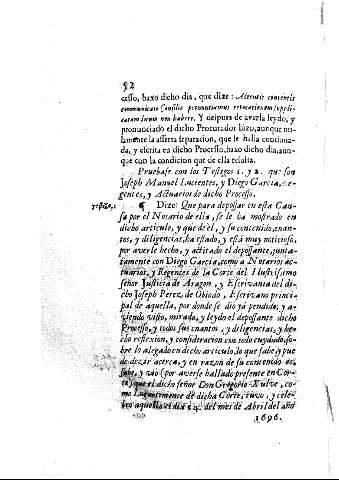 52
cesso, baxo dicho dia, que dize: Attentis contentis
communicato Consilio pronuntiamus revocationem suppli-
catam locum non habere. Y despues de averla leydo, y
pronunciado el dicho Procurador hizo, aunque nu-
lamente la asserta separacion, que se halla continua-
da, y escrita en dicho Processo, baxo dicho dia, aun-
que con la condicion que de ella resulta.
Pruebase con los Testigos 1. y 2. que son
Joseph Manuel Lucientes, y Diego Garcia, Re-
gentes, y Actuarios de dicho Processo.
¶ Dize: Que para depossar en esta Cau-
sa por el Notario de ella, se le ha mostrado en
dicho articulo, y que de èl, y su contenido, enan-
tos, y diligencias, ha estado, y està muy noticioso,
por averle hecho, y actitado el depossante, junta-
mente con Diego Garcia, como a Notarios ac-
tuarios, y Regentes de la Corte del Ilustrissimo
señor Justicia de Aragon, y Escrivania del di-
cho Joseph Perez, de Oviedo, Escrivano princi-
pal de aquella, por donde se diò ya pendido; y a-
viendo visto, mirado, y leydo el depossante dicho
Processo, y todos sus enantos, y diligencias, y he-
cho reflexion, y consideracion con todo cuydado, so-
bre lo alegado en dicho articulo, lo que sabe, y pue-
de dezir acerca, y en razon de su contenido es:
sabe, y viò (por averse hallado presente en Cor-
te) que el dicho señor Don Gregorio Xulve, co-
mo Lugarteniente de dicha Corte, tuvo, y cele-
brò aquella el dia 14. del mes de Abril del año
1696.